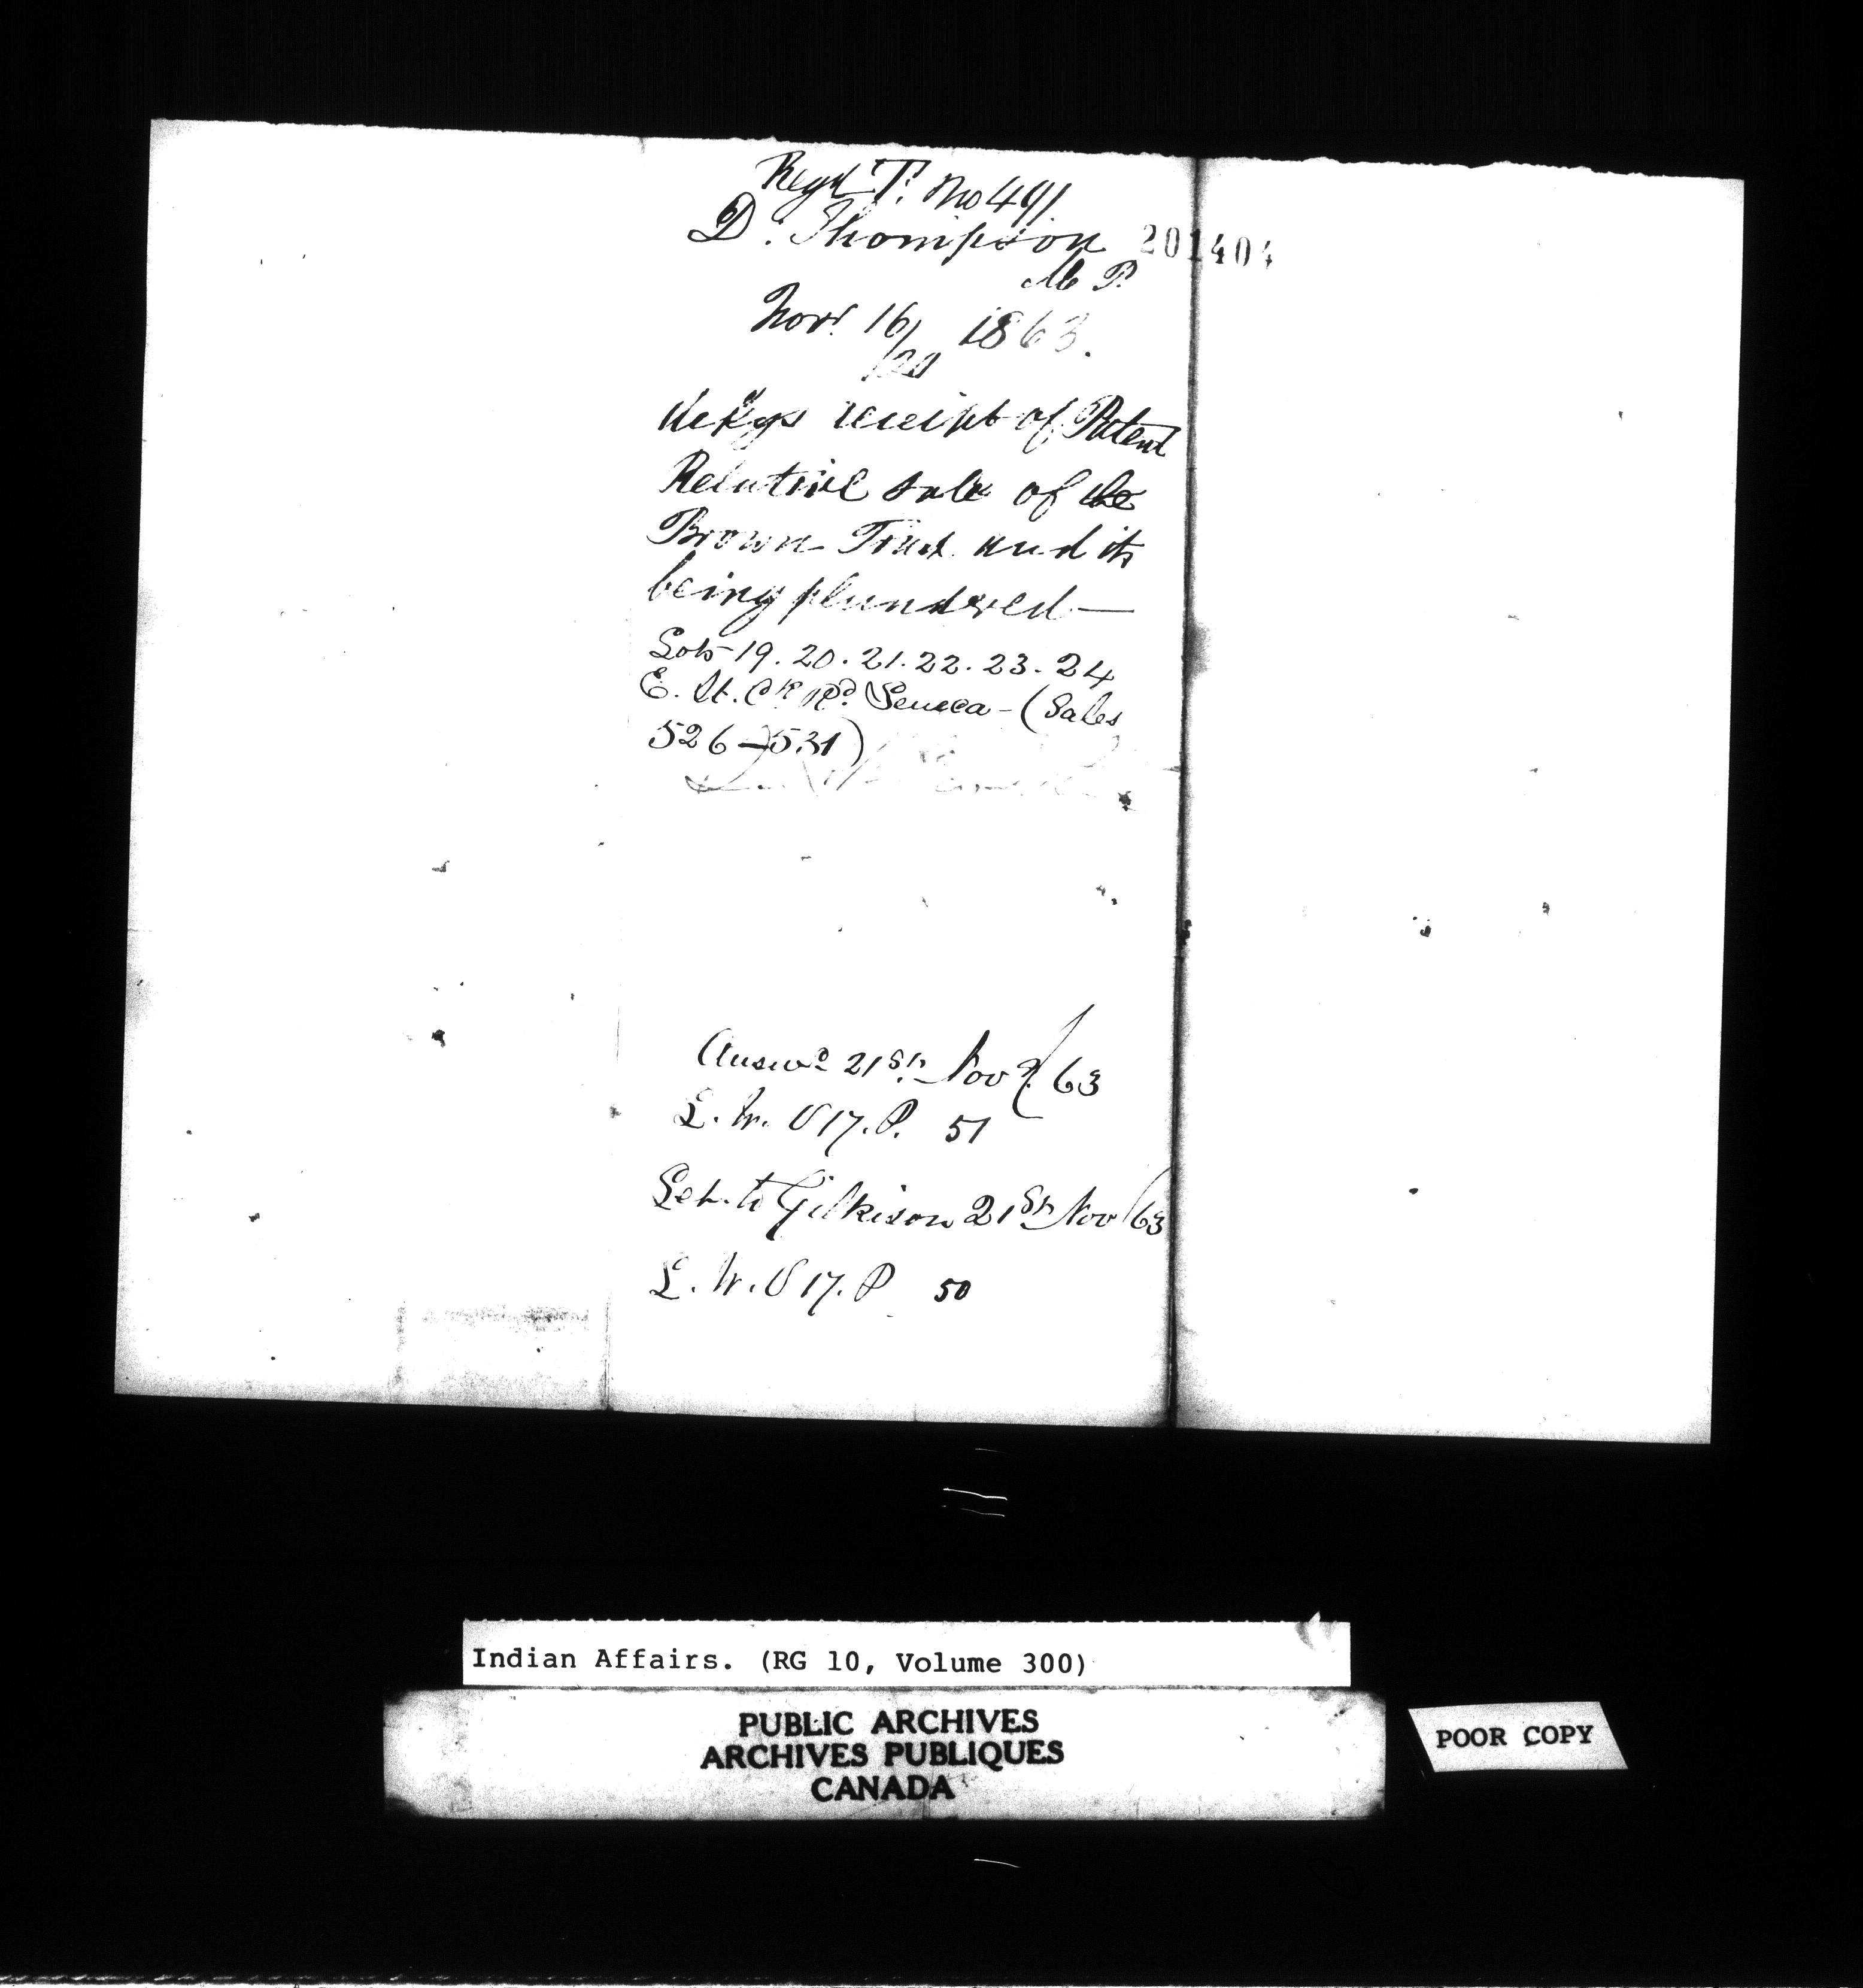 Regd T. No 491.
D. Thompson 201404
M P.
Novr. 16/20 1863.
Ackgs receipt of Patent
Relative sale of the
Brown Tract and its
being plundered —
Lots 19. 20. 21. 22. 23. 24
E. St. Ck Rd. Seneca - (Sales
526 — 531)
Answd 21st Novr/63
L. W. U 17. P. 51
Let. to Gilkison 21st Nov/63
L. W. U 17. P 50
Indian Affairs. (RG 10, Volume 300)
PUBLIC ARCHIVES
ARCHIVES PUBLIQUES
CANADA
POOR COPY